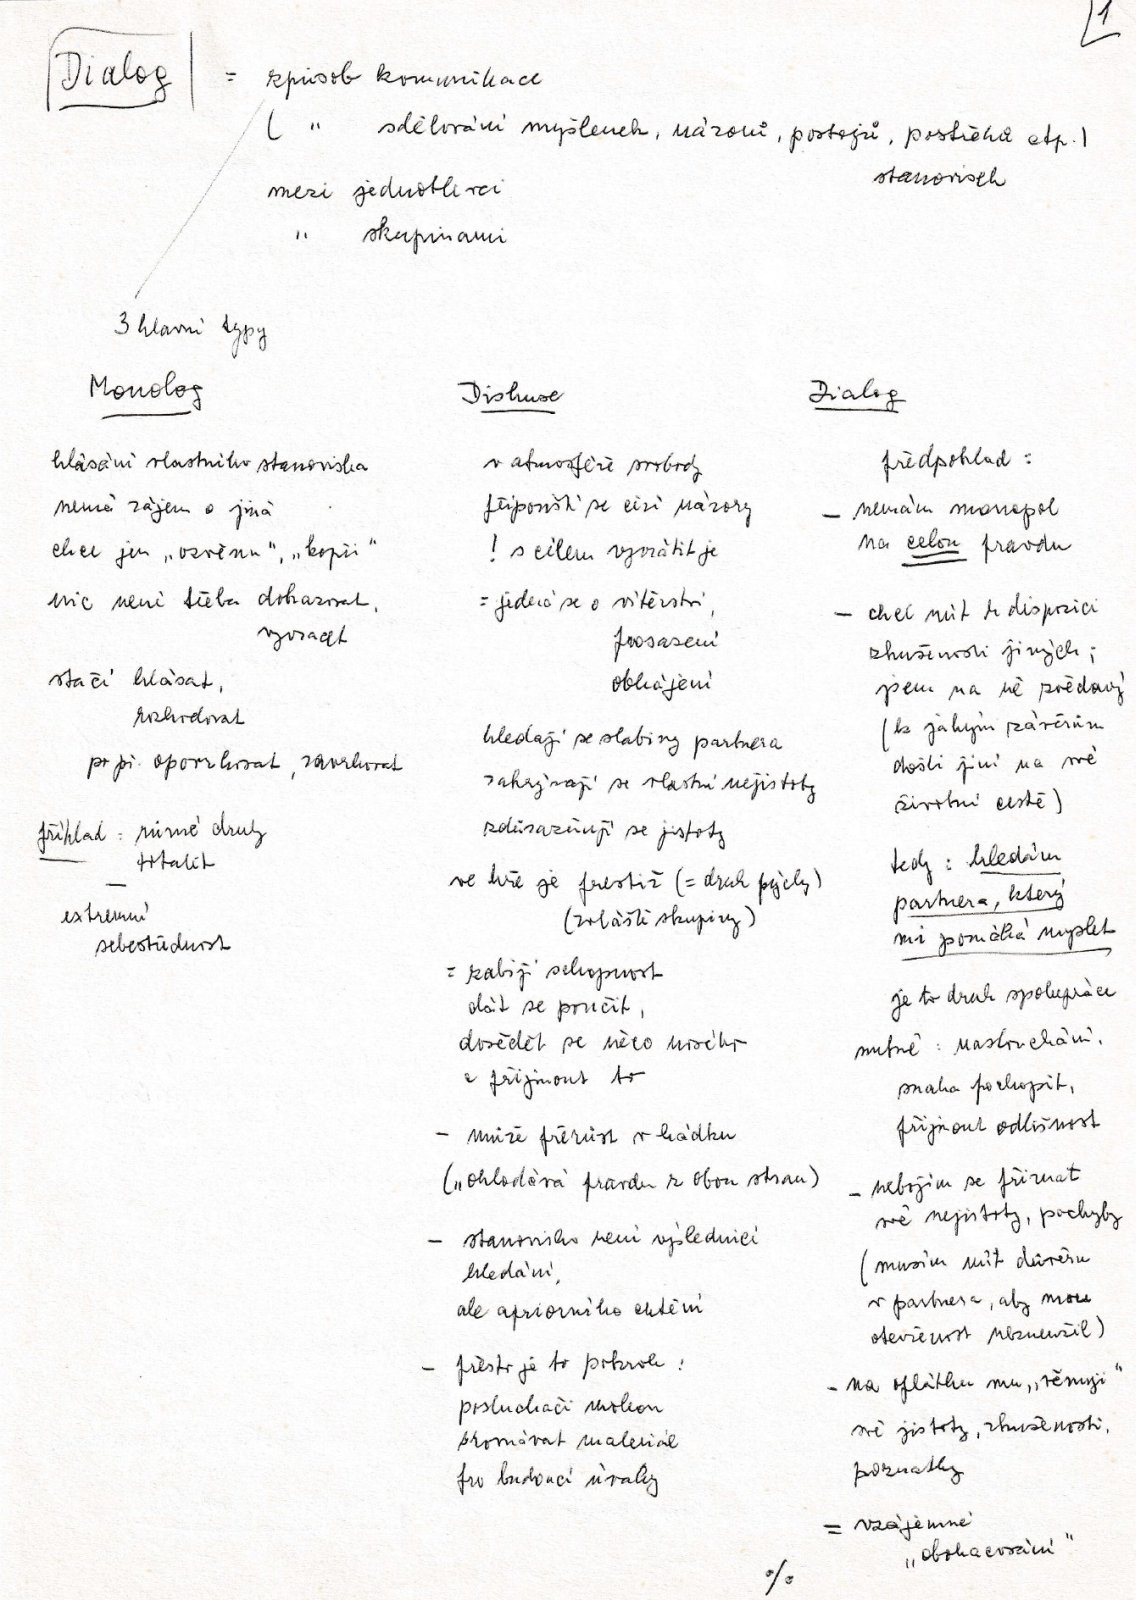 1
Dialog = způsob komunikace
( " sdělování myšlenek, názorů, postojů, postřehů atp.)
stanovisek
mezi jednotlivci
" skupinami
3 hlavní typy
Monolog
hlásání vlastního stanoviska
nemá zájem o jiná
chce jen „ozvěnu", „kopii"
nic není třeba dokazovat,
vyvracet
stačí hlásat,
rozhodovat
př. opovrhovat, zavrhovat
příklad: různé druhy
totalit
–
extremní
sebestřednost
Diskuse
v atmosféře svobody
připouští se cizí názory
! s cílem vyvrátit je
= jedná se o vítězství,
prosazení
obhájení
hledají se slabiny partnera
zakrývají se vlastní nejistoty
zdůrazňují se jistoty
ve hře je prestiž (= druh pýchy)
(zvláště skupiny)
= zabíjí schopnost
dát se poučit,
dovědět se něco nového
a přijmout to
– může přerůst v hádku
(„ohlodává pravdu z obou stran)
– stanovisko není výslednicí
hledání,
ale apriorního chtění
– přesto je to pokrok:
posluchači mohou
srovnávat materiál
pro budoucí úvahy
Dialog
předpoklad:
– nemám monopol
na celou pravdu
– chci mít k dispozici
zkušenosti jiných;
jsem na ně zvědavý
(k jakým závěrům
došli jiní na své
životní cestě)
tedy: hledám
partnera, který
mi pomáhá myslet
je to druh spolupráce
nutné: naslouchání,
snaha pochopit,
přijmout odlišnost
– nebojím se přiznat
své nejistoty, pochyby
(musím mít důvěru
v partnera, aby mou
otevřenost nezneužil)
– na oplátku mu „věnuji"
své jistoty, zkušenosti,
poznatky
= vzájemné
„obohacování"
%